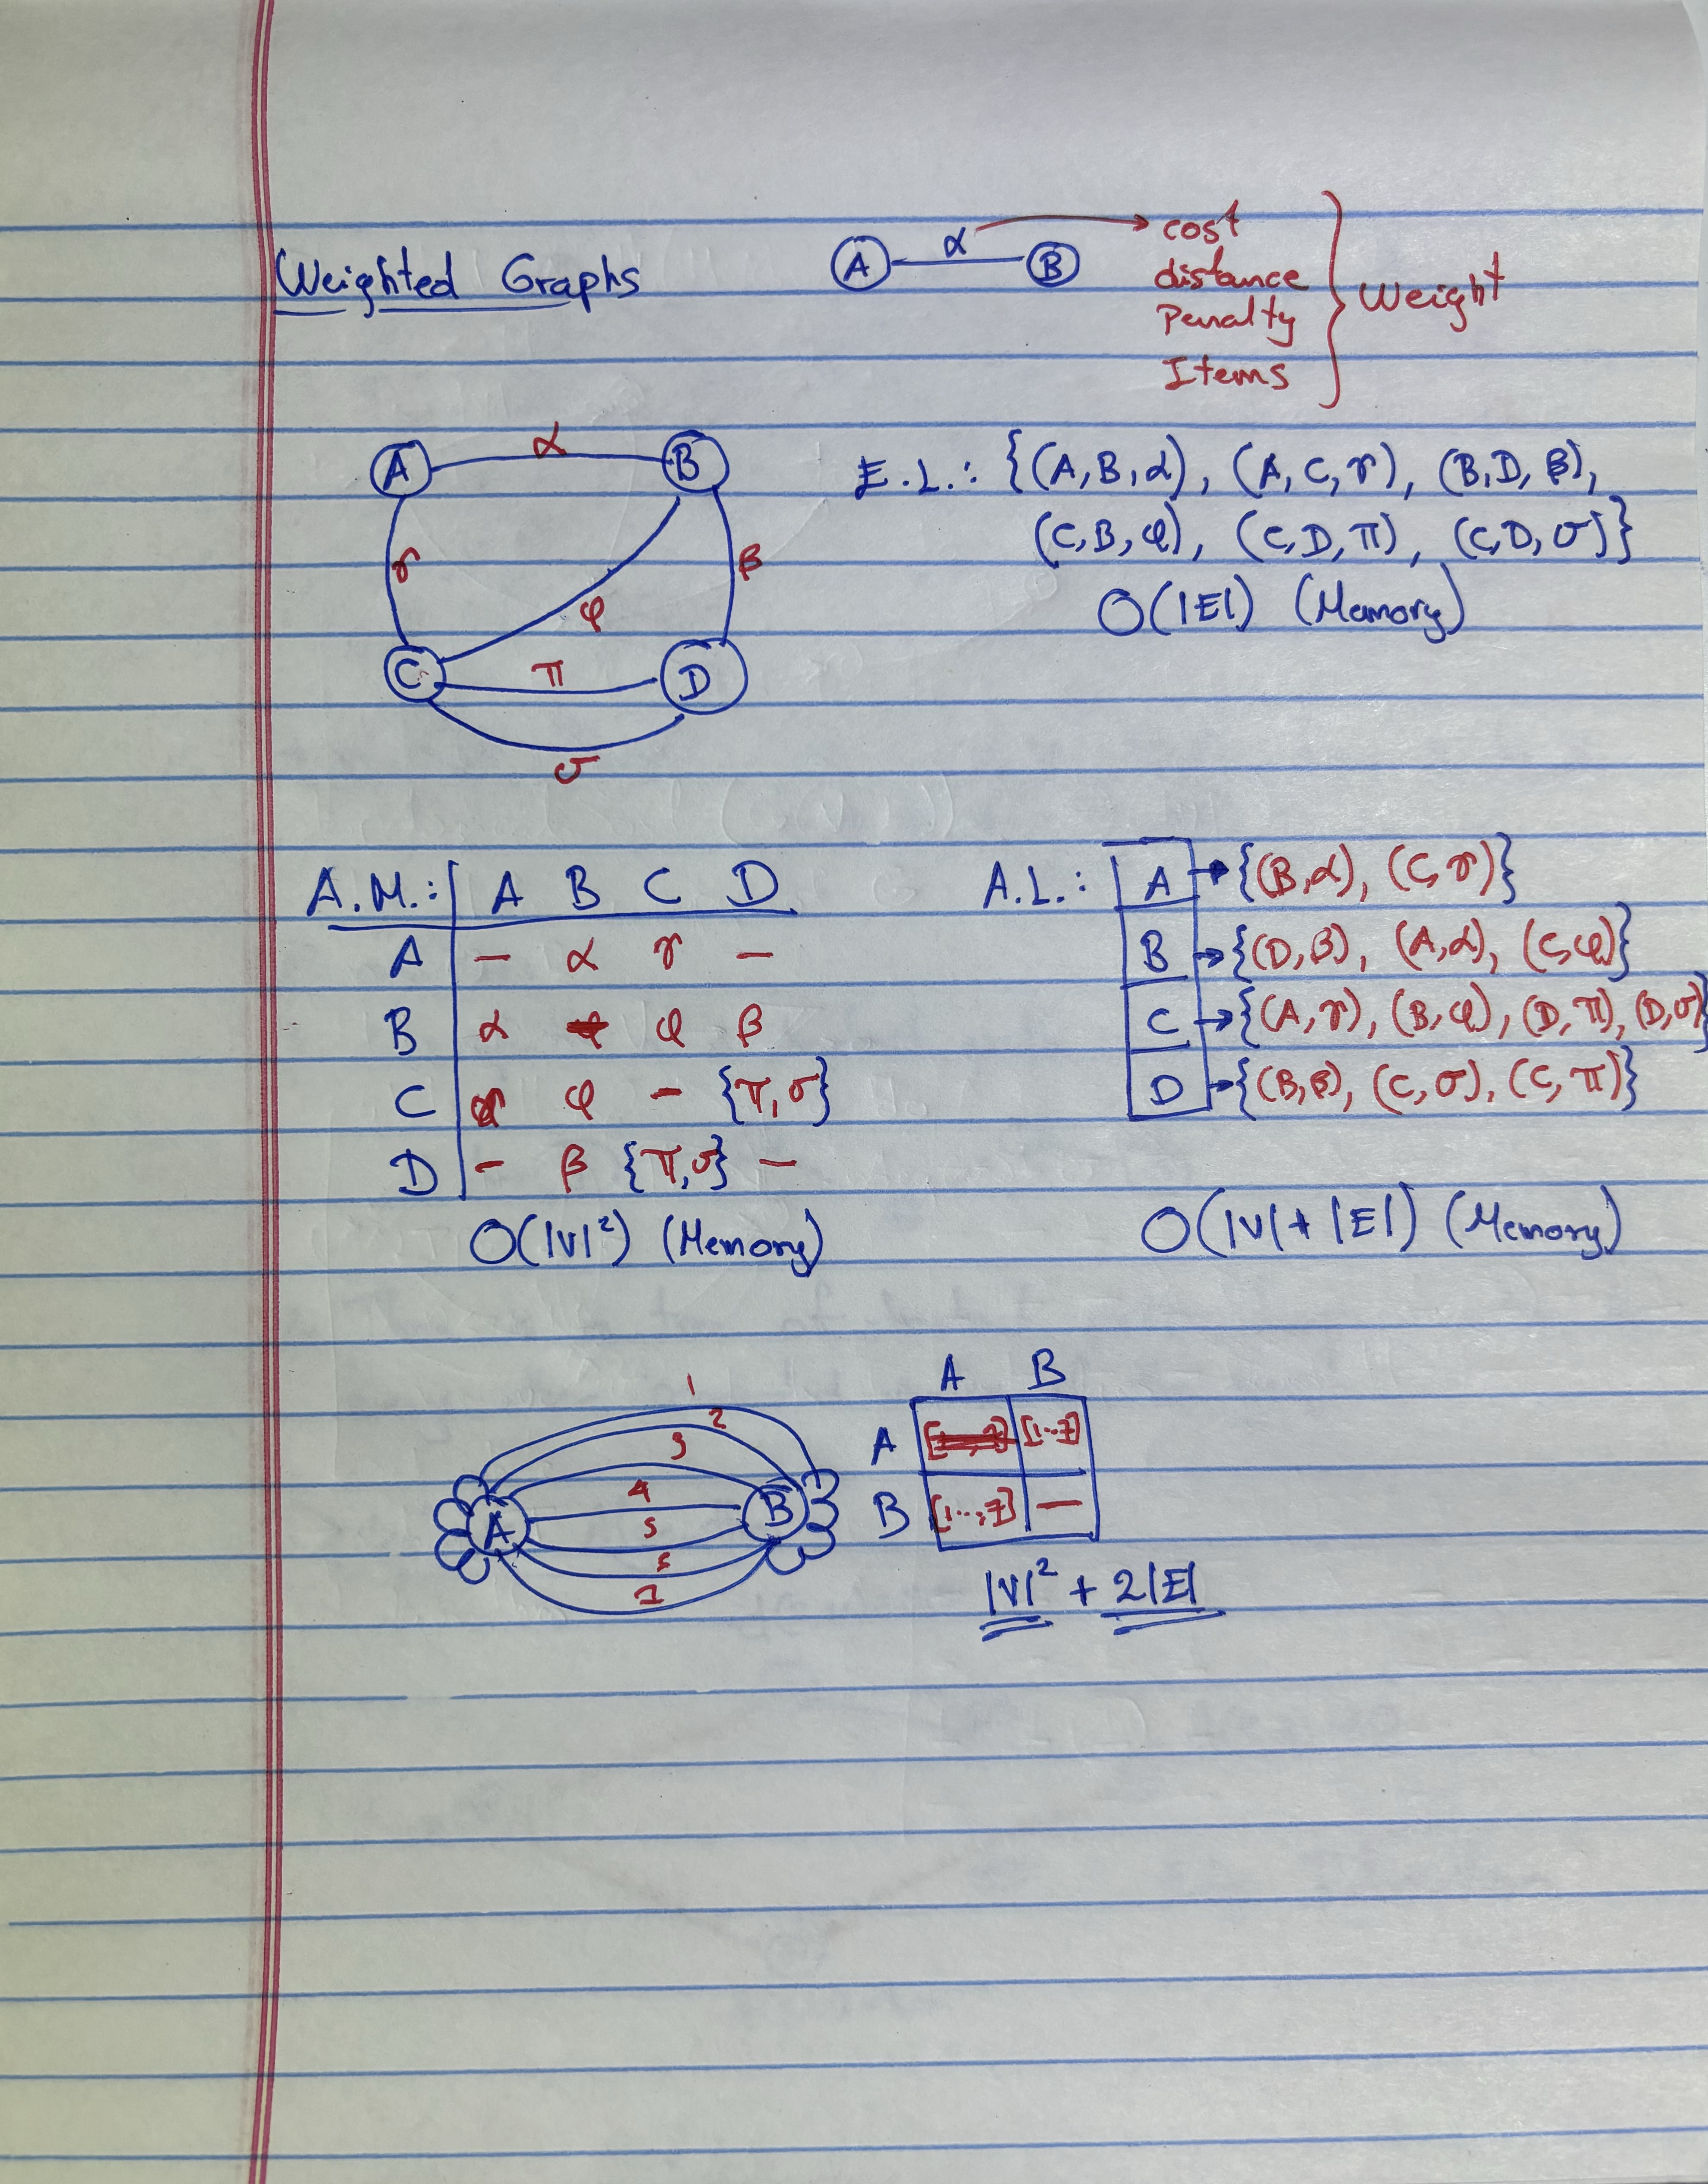 Weighted Graphs
A α B
cost
distance
Penalty
Items
Weight
A α B
γ φ β
C π D
σ
E.L.: {(A,B,α), (A,C,γ), (B,D,β),
(C,B,φ), (C,D,π), (C,D,σ)}
O(|E|) (Memory)
A.M.: A B C D
A — α γ —
B α φ β
C γ φ - {π,σ}
D - β {π,σ} —
O(|V|²) (Memory)
A.L.: A → {(B,α), (C,γ)}
B → {(D,β), (A,α), (C,φ)}
C → {(A,γ), (B,φ), (D,π), (D,σ)}
D → {(B,β), (C,σ), (C,π)}
O(|V| + |E|) (Memory)
1
2
3
4
5
A B
7
A B
A [1..7]
B [1..,7] —
|V|² + 2|E|